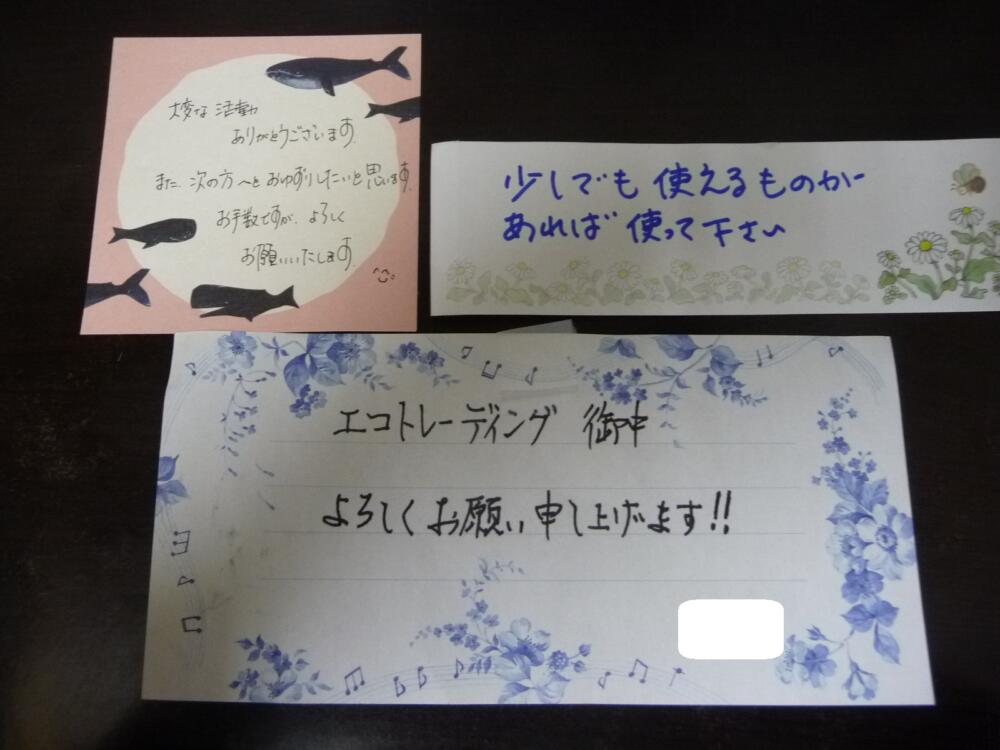 大変な活動
ありがとうございます。
また、次の方へとおゆずりしたいと思います。
お手数ですが、よろしく
お願いいたします。
少しでも使えるものが
あれば使って下さい
エコトレーディング 御中
よろしくお願い申し上げます!!